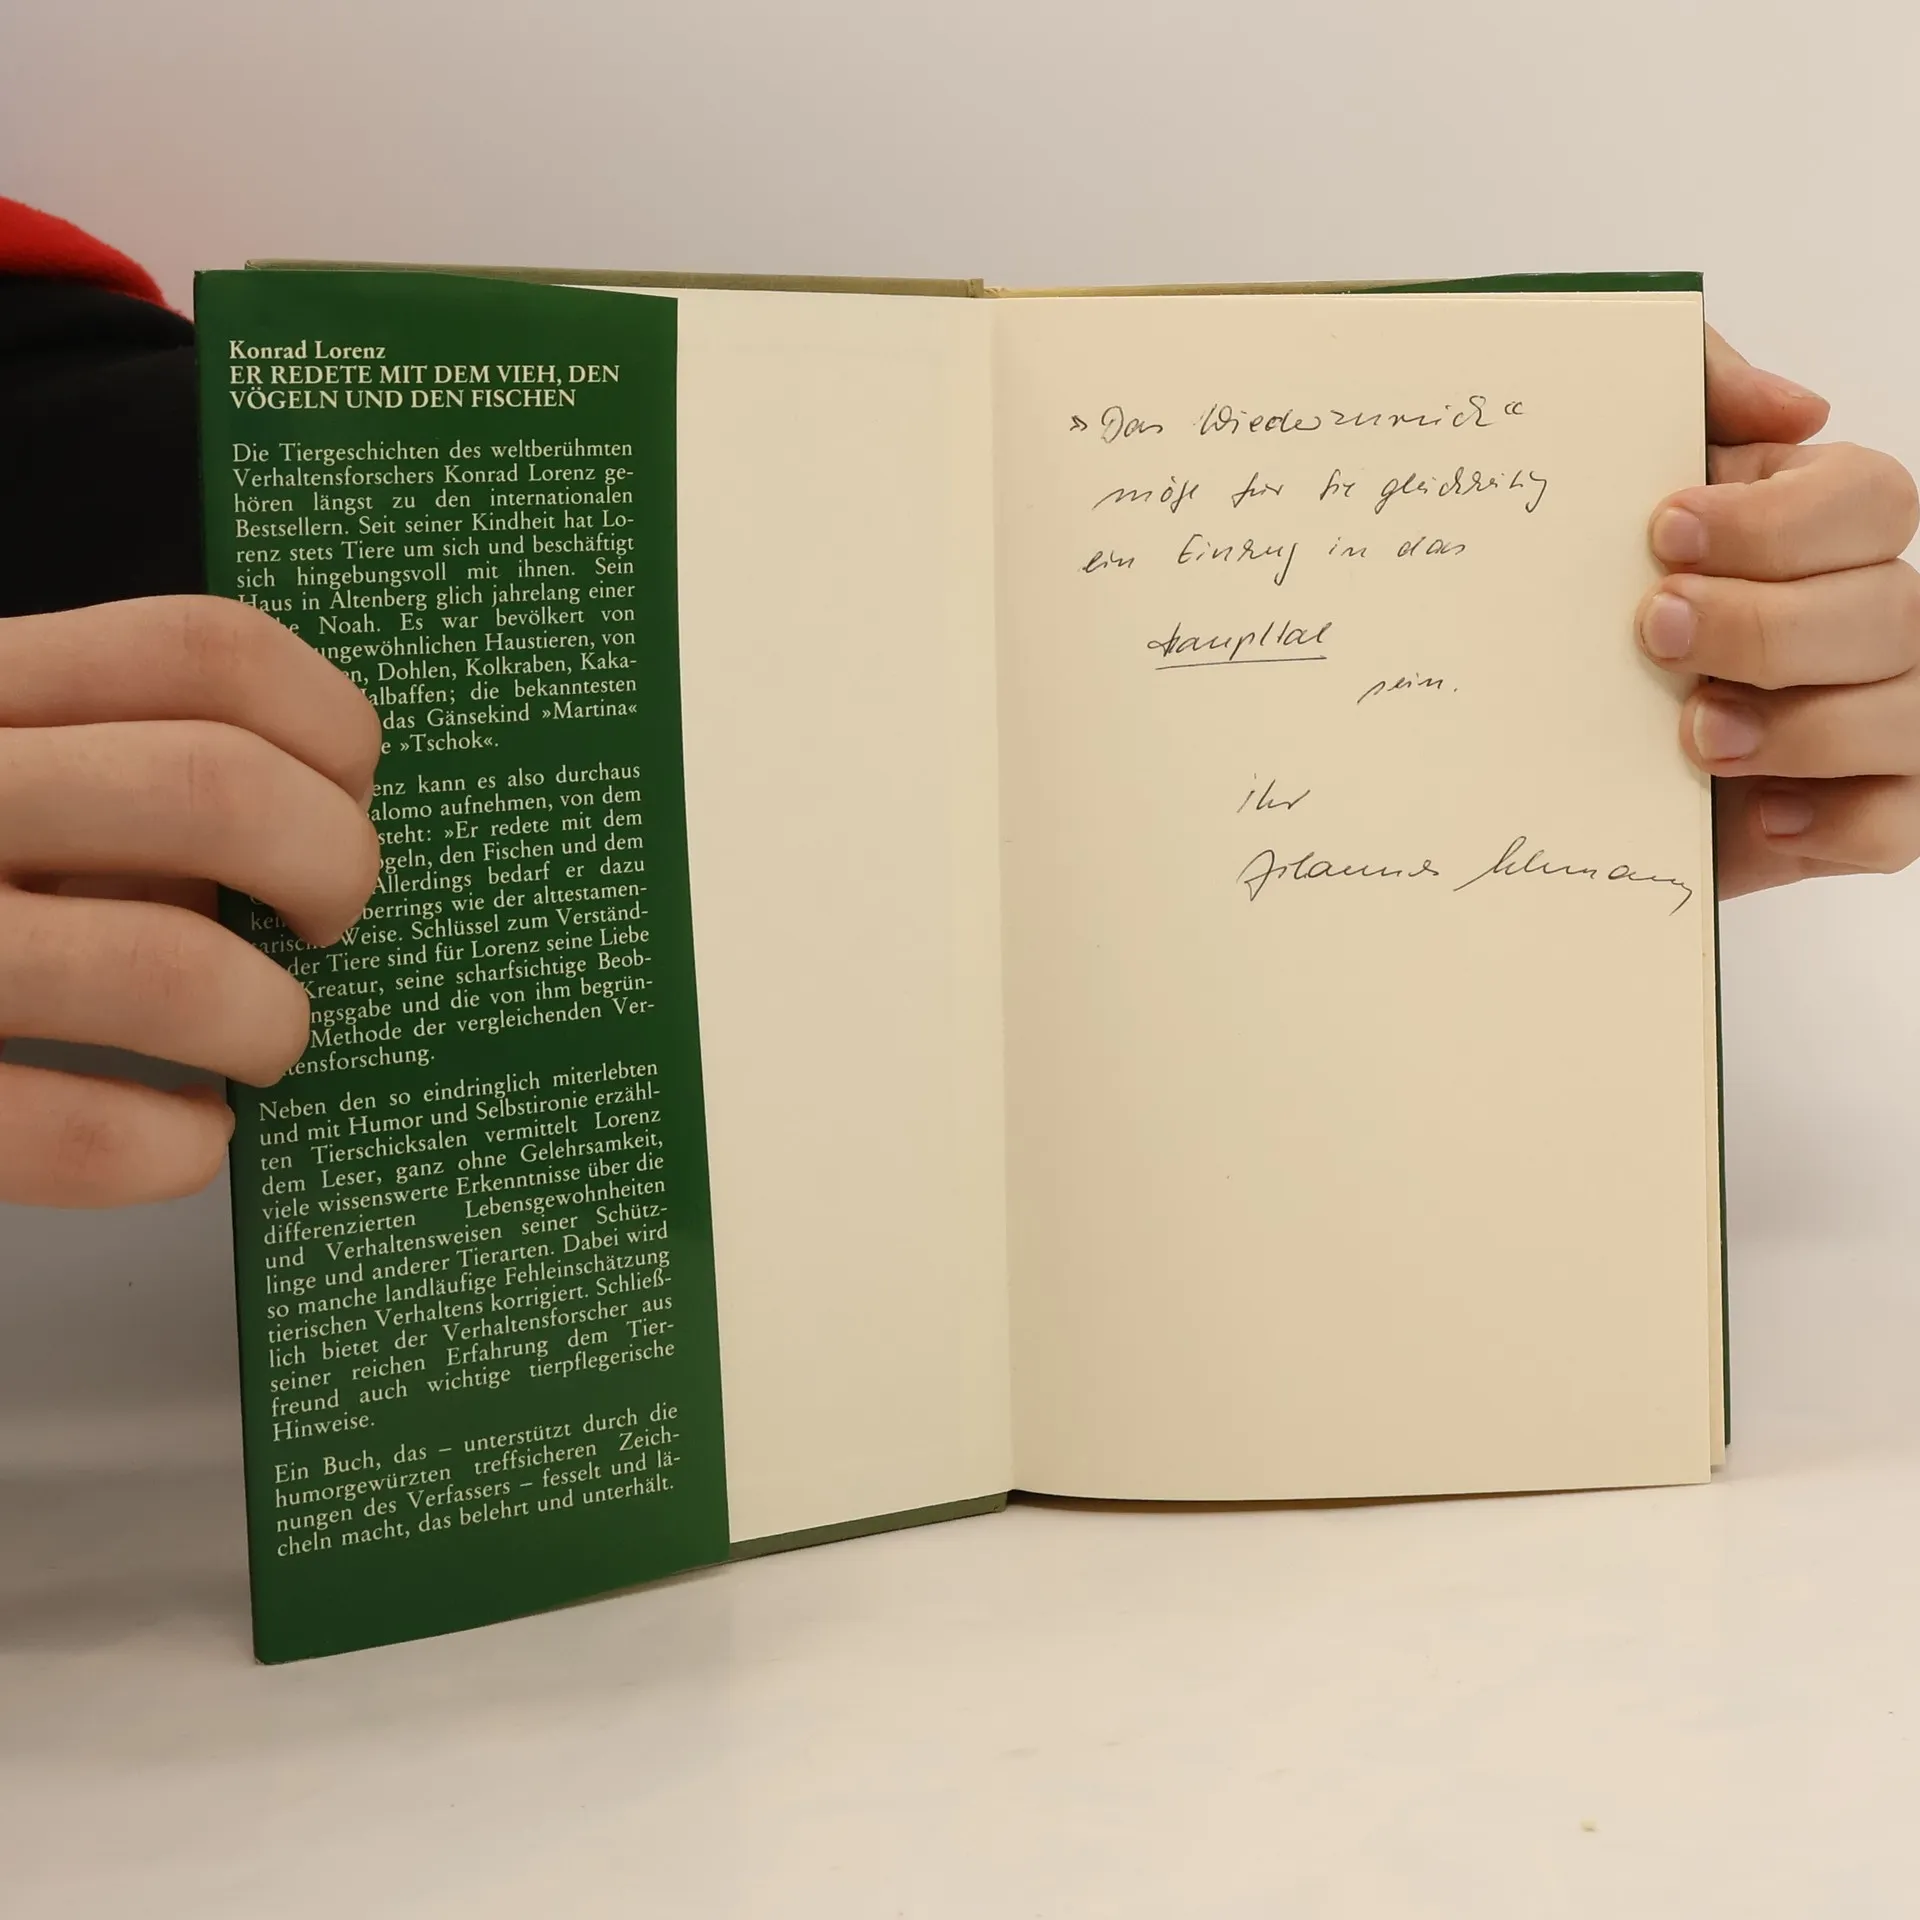 Konrad Lorenz
ER REDETE MIT DEM VIEH, DEN
VÖGELN UND DEN FISCHEN
Die Tiergeschichten des weltberühmten
Verhaltensforschers Konrad Lorenz ge-
hören längst zu den internationalen
Bestsellern. Seit seiner Kindheit hat Lo-
renz stets Tiere um sich und beschäftigt
sich hingebungsvoll mit ihnen. Sein
Haus in Altenberg glich jahrelang einer
Noah. Es war bevölkert von
ungewöhnlichen Haustieren, von
Dohlen, Kolkraben, Kaka-
albaffen; die bekanntesten
das Gänsekind »Martina«
»Tschok«.
enz kann es also durchaus
alomo aufnehmen, von dem
steht: »Er redete mit dem
ögeln, den Fischen und dem
Allerdings bedarf er dazu
berrings wie der alttestamen-
Weise. Schlüssel zum Verständ-
der Tiere sind für Lorenz seine Liebe
Kreatur, seine scharfsichtige Beob-
ngsgabe und die von ihm begrün-
Methode der vergleichenden Ver-
tensforschung.
Neben den so eindringlich miterlebten
und mit Humor und Selbstironie erzähl-
ten Tierschicksalen vermittelt Lorenz
dem Leser, ganz ohne Gelehrsamkeit,
viele wissenswerte Erkenntnisse über die
differenzierten Lebensgewohnheiten
und Verhaltensweisen seiner Schütz-
linge und anderer Tierarten. Dabei wird
so manche landläufige Fehleinschätzung
tierischen Verhaltens korrigiert. Schließ-
lich bietet der Verhaltensforscher aus
seiner reichen Erfahrung dem Tier-
freund auch wichtige tierpflegerische
Hinweise.
Ein Buch, das – unterstützt durch die
humorgewürzten treffsicheren Zeich-
nungen des Verfassers – fesselt und lä-
cheln macht, das belehrt und unterhält.
»Das Wiederzurück«
möge für Sie gleichzeitig
ein Einzug in das
sein.
Ihr
Johannes